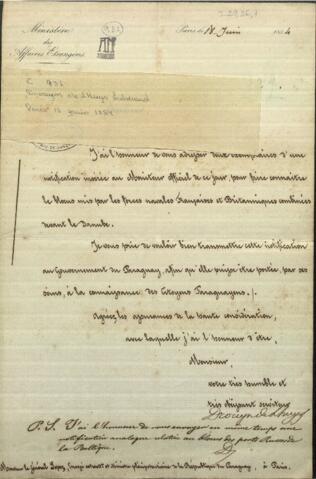 Ministère
des
Affaires Etrangères
Paris, le 18 Juin 1854
J'ai l'honneur de vous adresser deux exemplaires d'une
notification insérée au Moniteur officiel de ce jour, pour faire connaître
le blocus mis par les forces navales Françaises et Britanniques combinées
devant le Danube.
Je vous prie de vouloir bien transmettre cette notification
au Gouvernement du Paraguay, afin qu'elle puisse être portée, par ses
soins, à la connaissance des Citoyens Paraguayens.
Agréez les assurances de la haute considération,
avec laquelle j'ai l'honneur d'être,
Monsieur,
votre très humble et
très obéissant serviteur
Drouyn de Lhuys
P. S. J'ai l'honneur de vous envoyer en même temps une
notification analogue relative au blocus des ports Russes de
la Baltique.
Monsieur le Général Lopez, envoyé extraord. et ministre plénipotentiaire de la République du Paraguay, à Paris.